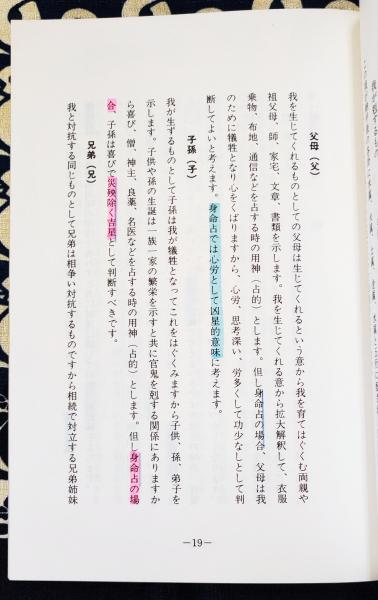 父母（父）
我を生じてくれるものとしての父母は生じてくれるという意から我を育てはぐくむ両親や
祖父母、師、家宅、文章、書類を示します。我を生じてくれる意から拡大解釈して、衣服
乗物、布地、通信などを占する時の用神（占的）とします。但し身命占の場合、父母は我
のために犠牲となり心をくばりますから、心労、思考深い、労多くして功少なしとして判
断してよいと考えます。身命占では心労として凶星的意味に考えます。
子孫（子）
我が生ずるものとして子孫は我が犠牲となってこれをはぐくみますから子供、孫、弟子を
示します。子供や孫の生誕は一族一家の繁栄を示すと共に官鬼を剋する関係にありますか
ら喜び、僧、神主、良薬、名医などを占する時の用神（占的）とします。但し身命占の場
合、子孫は喜びで災殃除く吉星として判断すべきです。
兄弟（兄）
我と対抗する同じものとして兄弟は相争い対抗するものですから相続で対立する兄弟姉妹
—19—